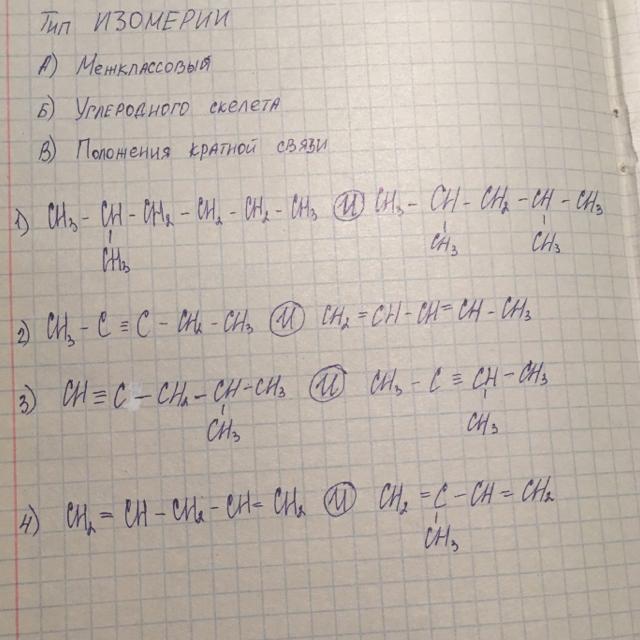 Тип ИЗОМЕРИИ
А) Межклассовый
Б) Углеродного скелета
В) Положения кратной связи
1) CH₃ - CH - CH₂ - CH₂ - CH₂ - CH₃ И CH₃ - CH - CH₂ - CH - CH₃
CH₃ CH₃ CH₃
2) CH₃ - C ≡ C - CH₂ - CH₃ И CH₂ = CH - CH = CH - CH₃
3) CH ≡ C - CH₂ - CH - CH₃ И CH₃ - C ≡ CH - CH₃
CH₃ CH₃
4) CH₂ = CH - CH₂ - CH = CH₂ И CH₂ = C - CH = CH₂
CH₃